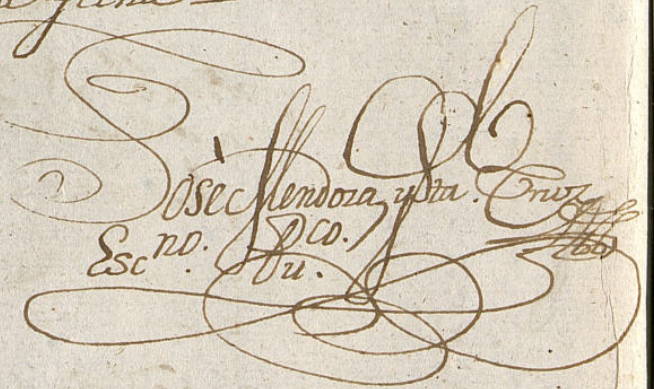 Josec Mendoza, y Sta. Cruz
Escno. Puco.